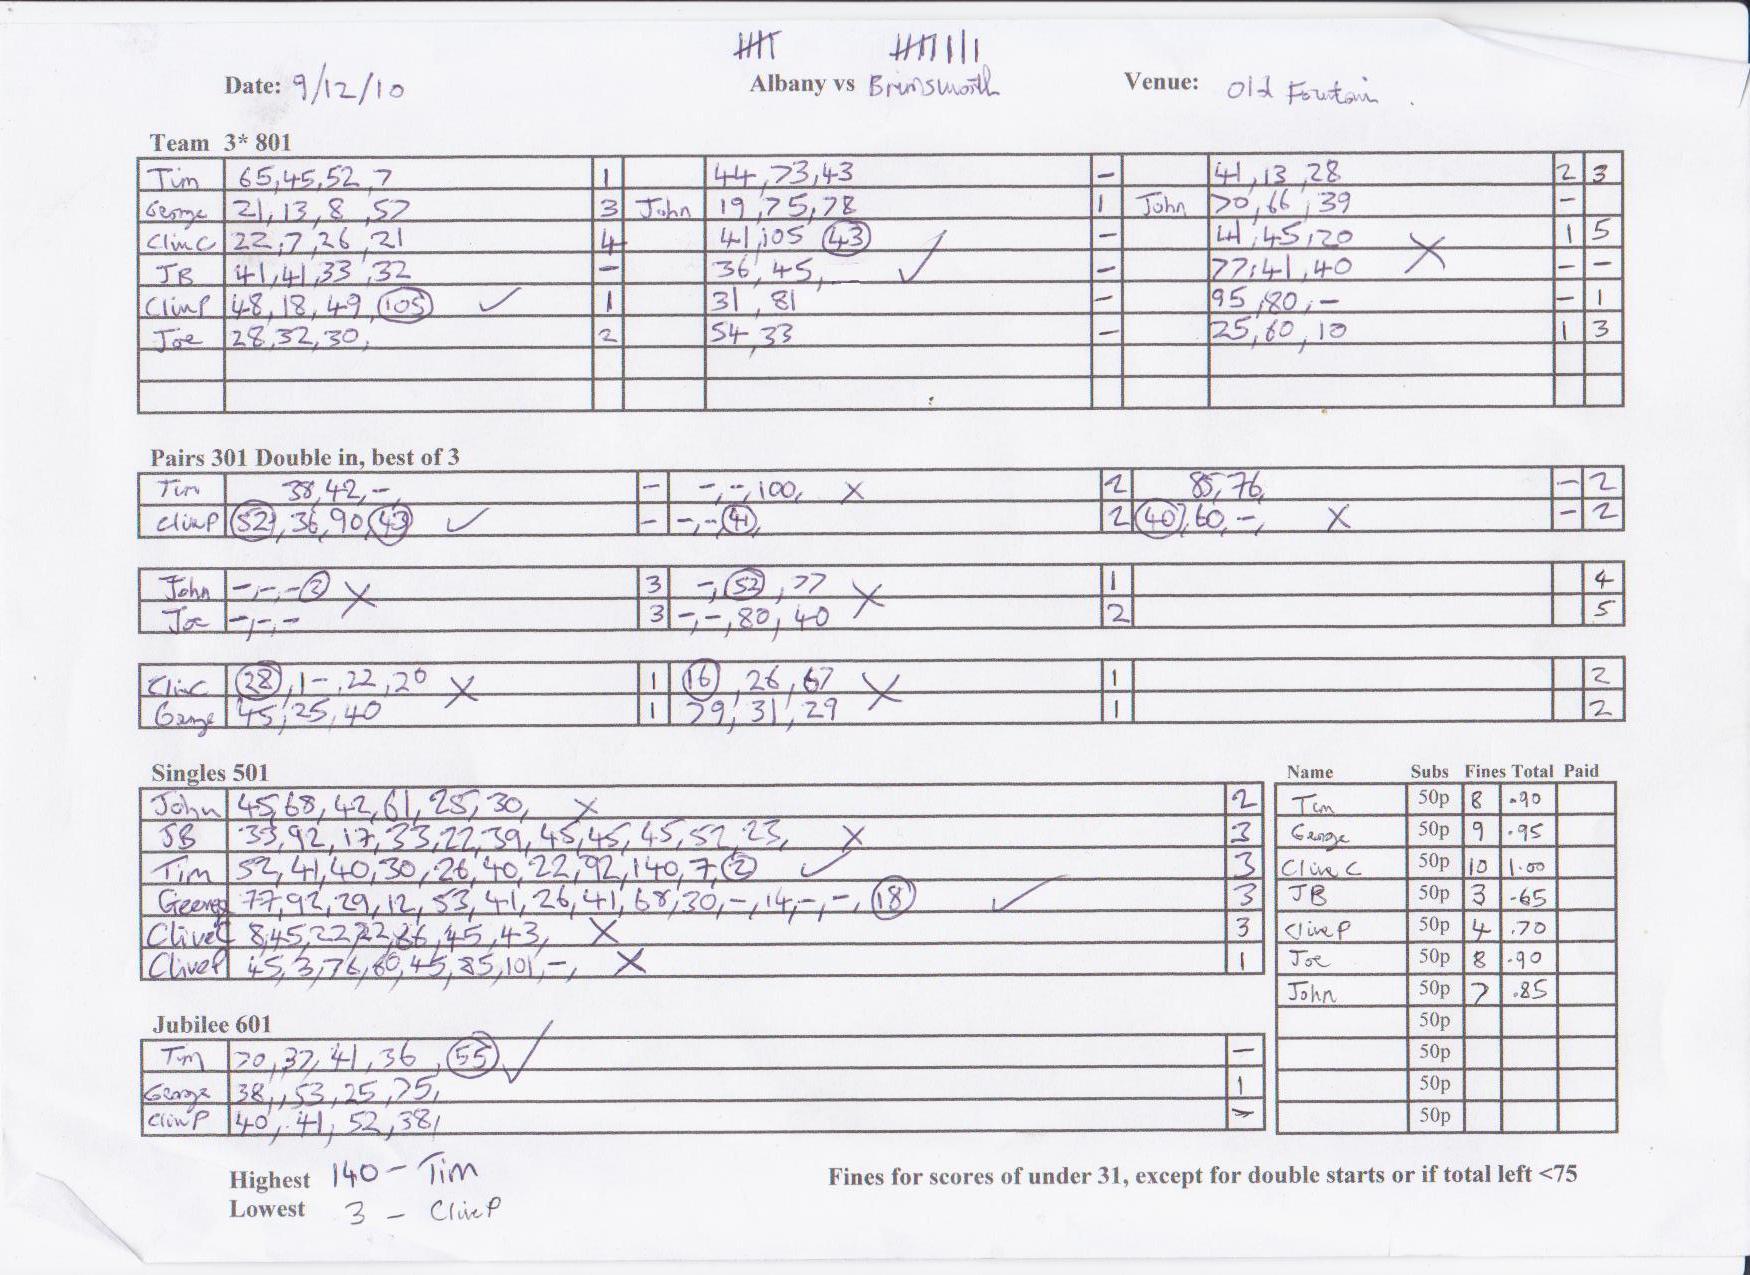 Date: 9/12/10 Albany vs Brinsworth Venue: Old Fountain
Team 3* 801
Tim 65,45,52,7 1 44,73,43 - 41,13,28 2 3
George 21,13,8,57 3 John 19,75,78 1 John 70,66,39 -
Clive C 22,7,26,21 4 41,105 43 ✓ - 41,45,20 X 1 5
JB 41,41,33,32 - 36,45, - 77,41,40 - -
Clive P 48,18,49,105 ✓ 1 31,81 - 95,80,- - 1
Joe 28,32,30, 2 54,33 - 25,60,10 1 3
Pairs 301 Double in, best of 3
Tim 38,42,-, - -,-,100, X 2 85,76, - 2
Clive P 52,36,90,43 ✓ - -,-,41, 2 40,60,-, X - 2
John -,-,-2 X 3 -,52,77 X 1 4
Joe -,-,- 3 -,-,80,40 2 5
Clive C 28,1-,22,20 X 1 16,26,67 X 1 2
George 45,25,40 1 79,31,29 1 2
Singles 501
John 45,68,42,61,25,30, X 2
JB 33,92,17,33,22,39,45,45,45,52,23, X 3
Tim 52,41,40,30,26,40,22,92,140,7,2 ✓ 3
George 77,92,29,12,53,41,26,41,68,30,-,14,-,-,18 ✓ 3
Clive C 8,45,22,22,66,45,43, X 3
Clive P 45,3,76,60,45,85,101,-, X 1
Name Subs Fines Total Paid
Tim 50p 8 .90
George 50p 9 .95
Clive C 50p 10 1.00
JB 50p 3 .65
Clive P 50p 4 .70
Joe 50p 8 .90
John 50p 7 .85
50p
50p
50p
50p
Jubilee 601
Tim 70,37,41,36,55 ✓ -
George 38,,53,25,75, 1
Clive P 40,41,52,38, -
Highest 140 - Tim
Lowest 3 - Clive P
Fines for scores of under 31, except for double starts or if total left <75